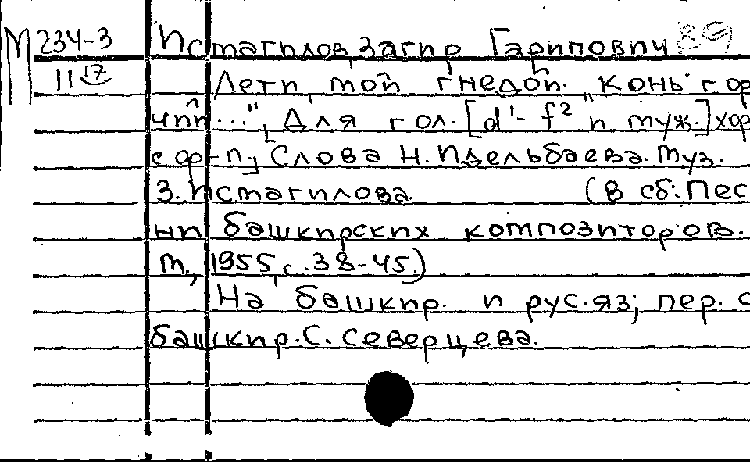 М 234-3 Исмагилов, Загир Гарипович 89
11 17 Лети, мой гнедой. "Конь гор
чий..."; Для гол. [d¹- f² и муж.] хор
с ф-п; Слова Н. Идельбаева. Муз.
З. Исмагилова (в сб: Пес
ни башкирских композиторов.
М., 1955, с. 38-45.)
На башкир. и рус. яз; пер. с
башкир. С. Северцева.